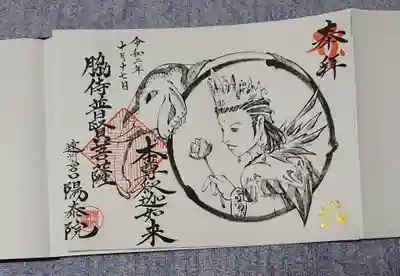 奉拝
本尊釈迦如来
令和二年
十月十七日
脇侍普賢菩薩
陽泰院